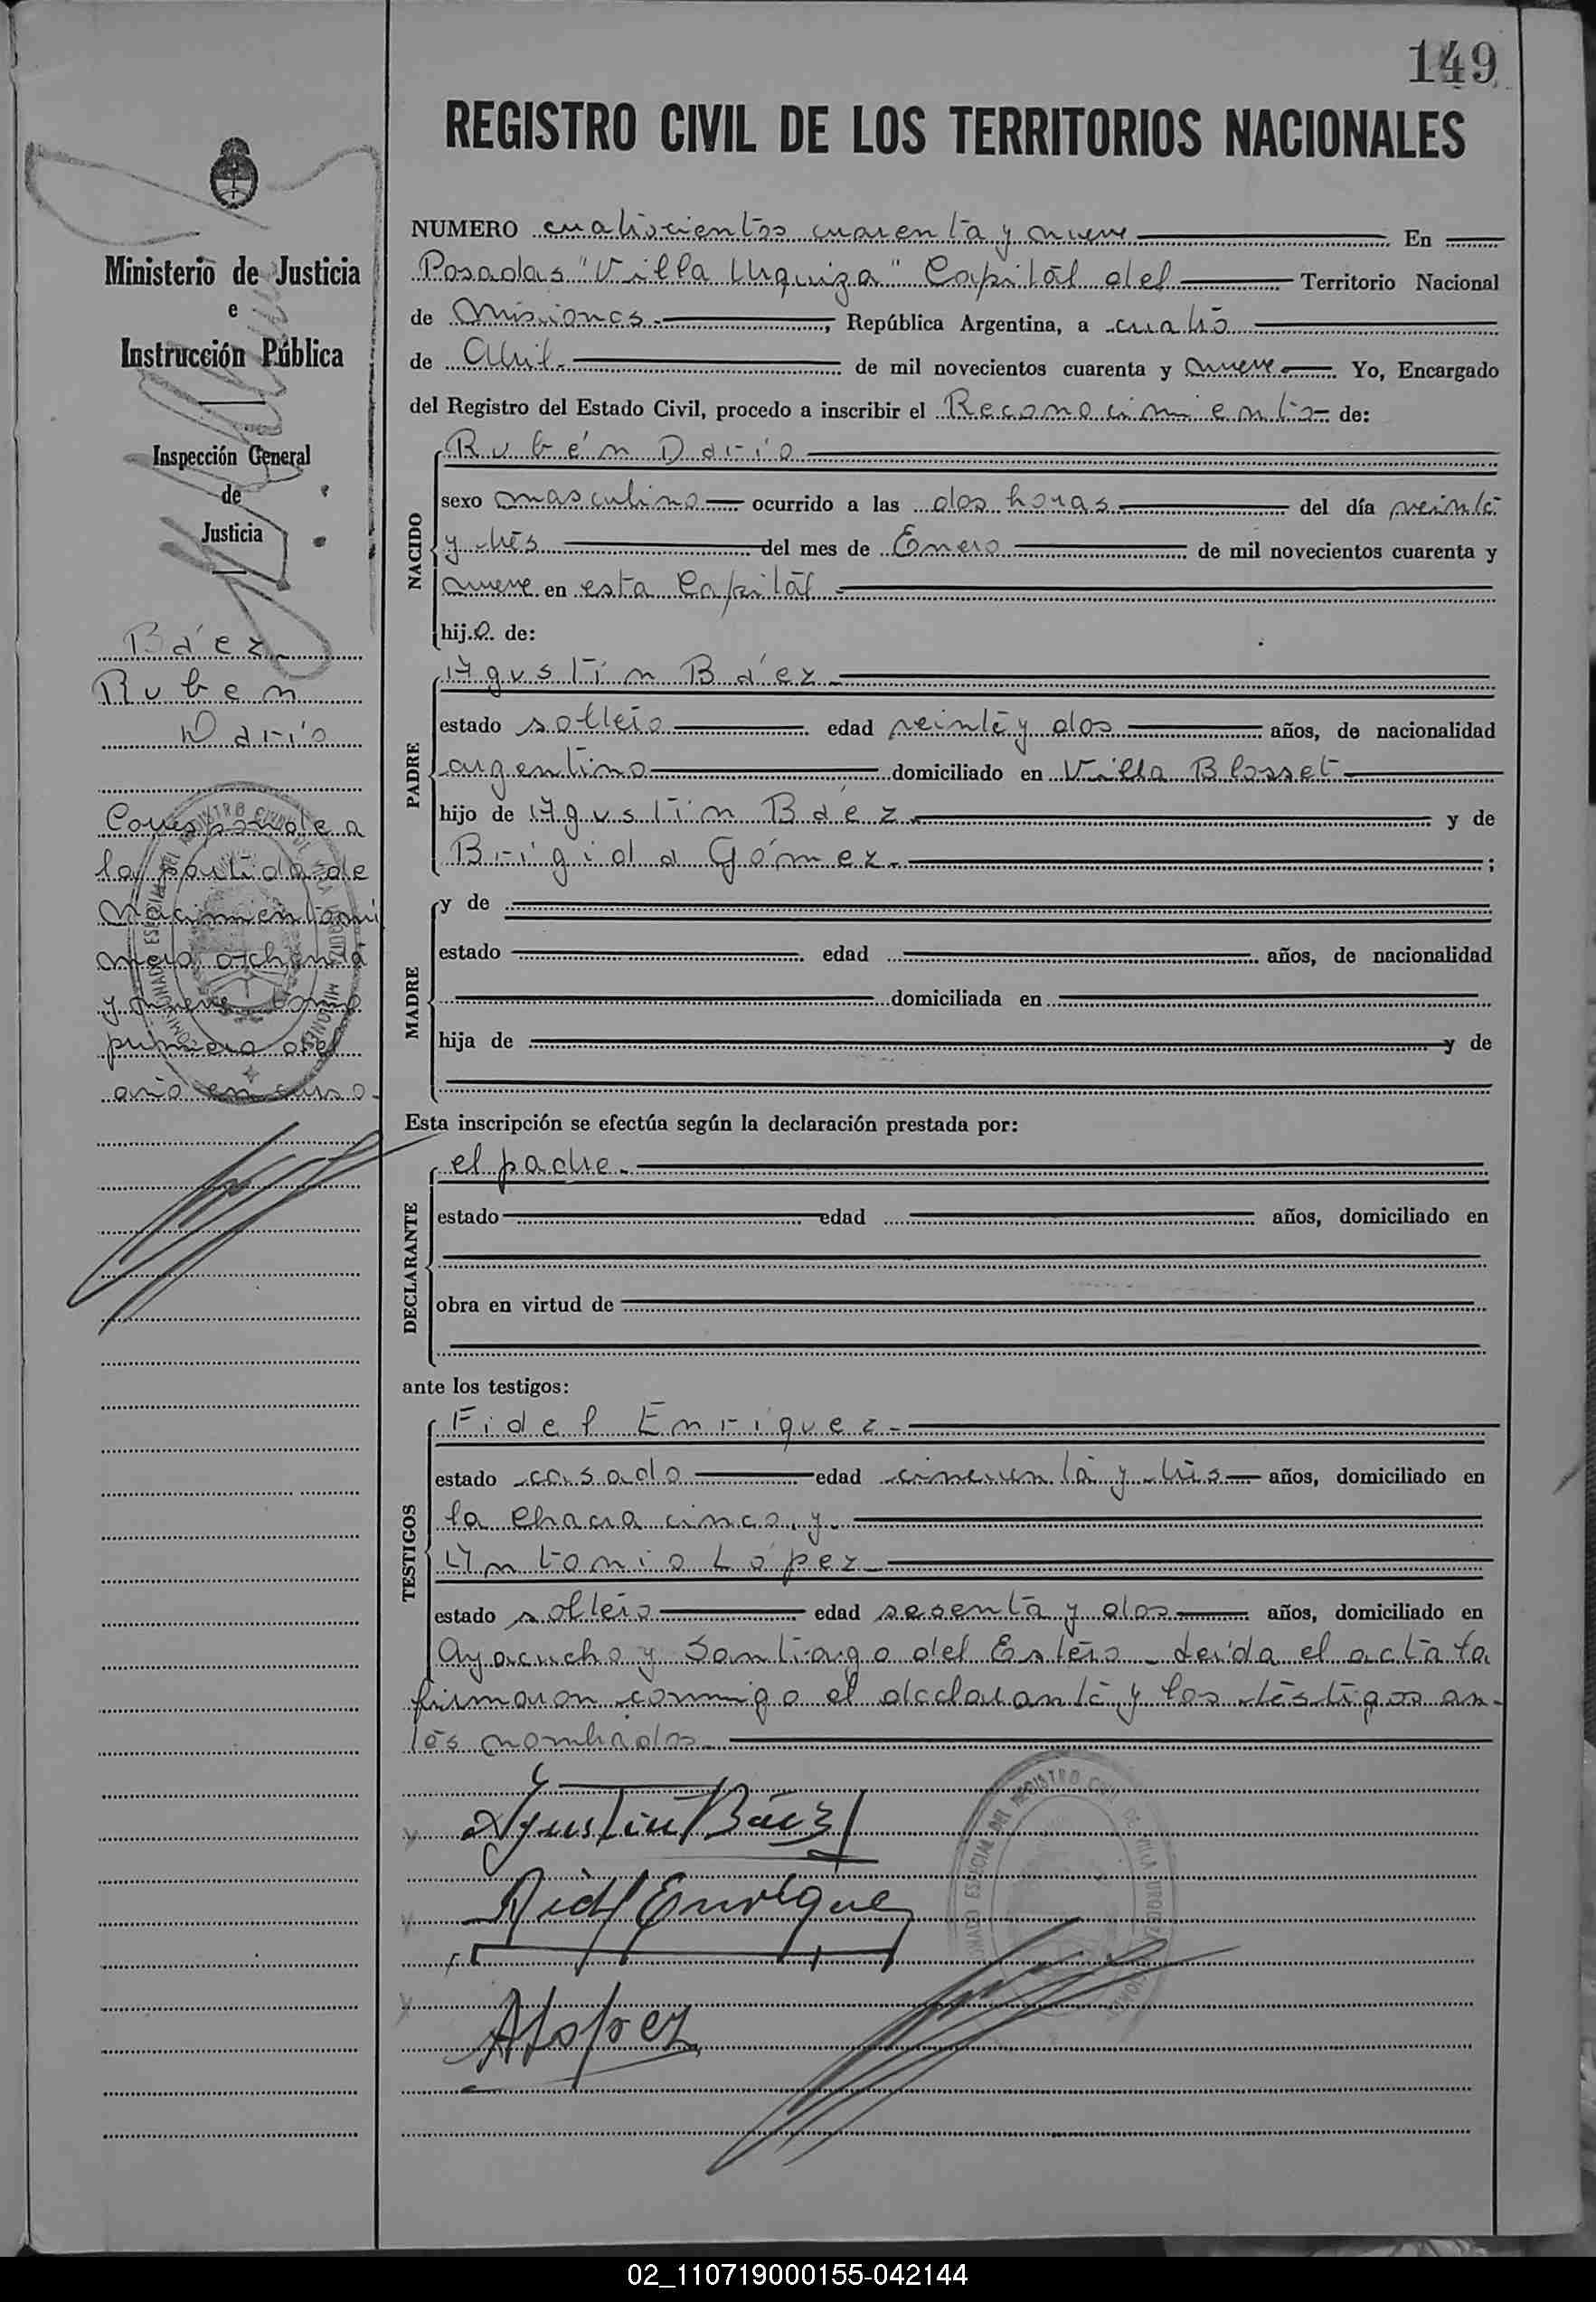 149
REGISTRO CIVIL DE LOS TERRITORIOS NACIONALES
Ministerio de Justicia
e
Instrucción Pública
Inspección General
de
Justicia
Báez
Ruben
Darío
Corresponde a
la partida de
Nacimiento nú
mero ochenta
y nueve tomo
primero del
año en curso.
NUMERO cuatrocientos cuarenta y nueve En
Posadas "Villa Urquiza" Capital del Territorio Nacional
de Misiones, República Argentina, a cuatro
de Abril de mil novecientos cuarenta y nueve Yo, Encargado
del Registro del Estado Civil, procedo a inscribir el Reconocimiento de:
NACIDO
Rubén Darío
sexo masculino ocurrido a las dos horas del día veinte
y tres del mes de Enero de mil novecientos cuarenta y
nueve en esta Capital
hijo de:
PADRE
Agustín Báez
estado soltero edad veinte y dos años, de nacionalidad
argentino domiciliado en Villa Blosset
hijo de Agustín Báez y de
Brígida Gómez ;
MADRE
y de
estado edad años, de nacionalidad
domiciliada en
hija de y de
Esta inscripción se efectúa según la declaración prestada por:
DECLARANTE
el padre
estado edad años, domiciliado en
obra en virtud de
ante los testigos:
TESTIGOS
Fidel Enríquez
estado casado edad cincuenta y tres años, domiciliado en
la Chacra cinco, y
Antonio López
estado soltero edad sesenta y dos años, domiciliado en
Ayacucho y Santiago del Estero. Leída el acta la
firmaron conmigo el declarante y los testigos an-
tes nombrados.
Agustin Báez
Enrique
A Lopez
02_110719000155-042144